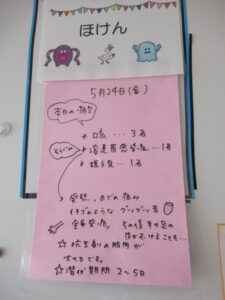 ほけん
5月24日(金)
本日の病欠
☆ 口炎 ... 3名
☆ 溶連菌感染症 ... 1名
☆ 様子見 ... 1名
発熱、のどの痛み
イチゴのような ブツブツ舌
全身発疹、その後 手や足の
皮がむけることも...
☆ 抗生剤の服用が
大切です。
☆ 潜伏期間 2~5日